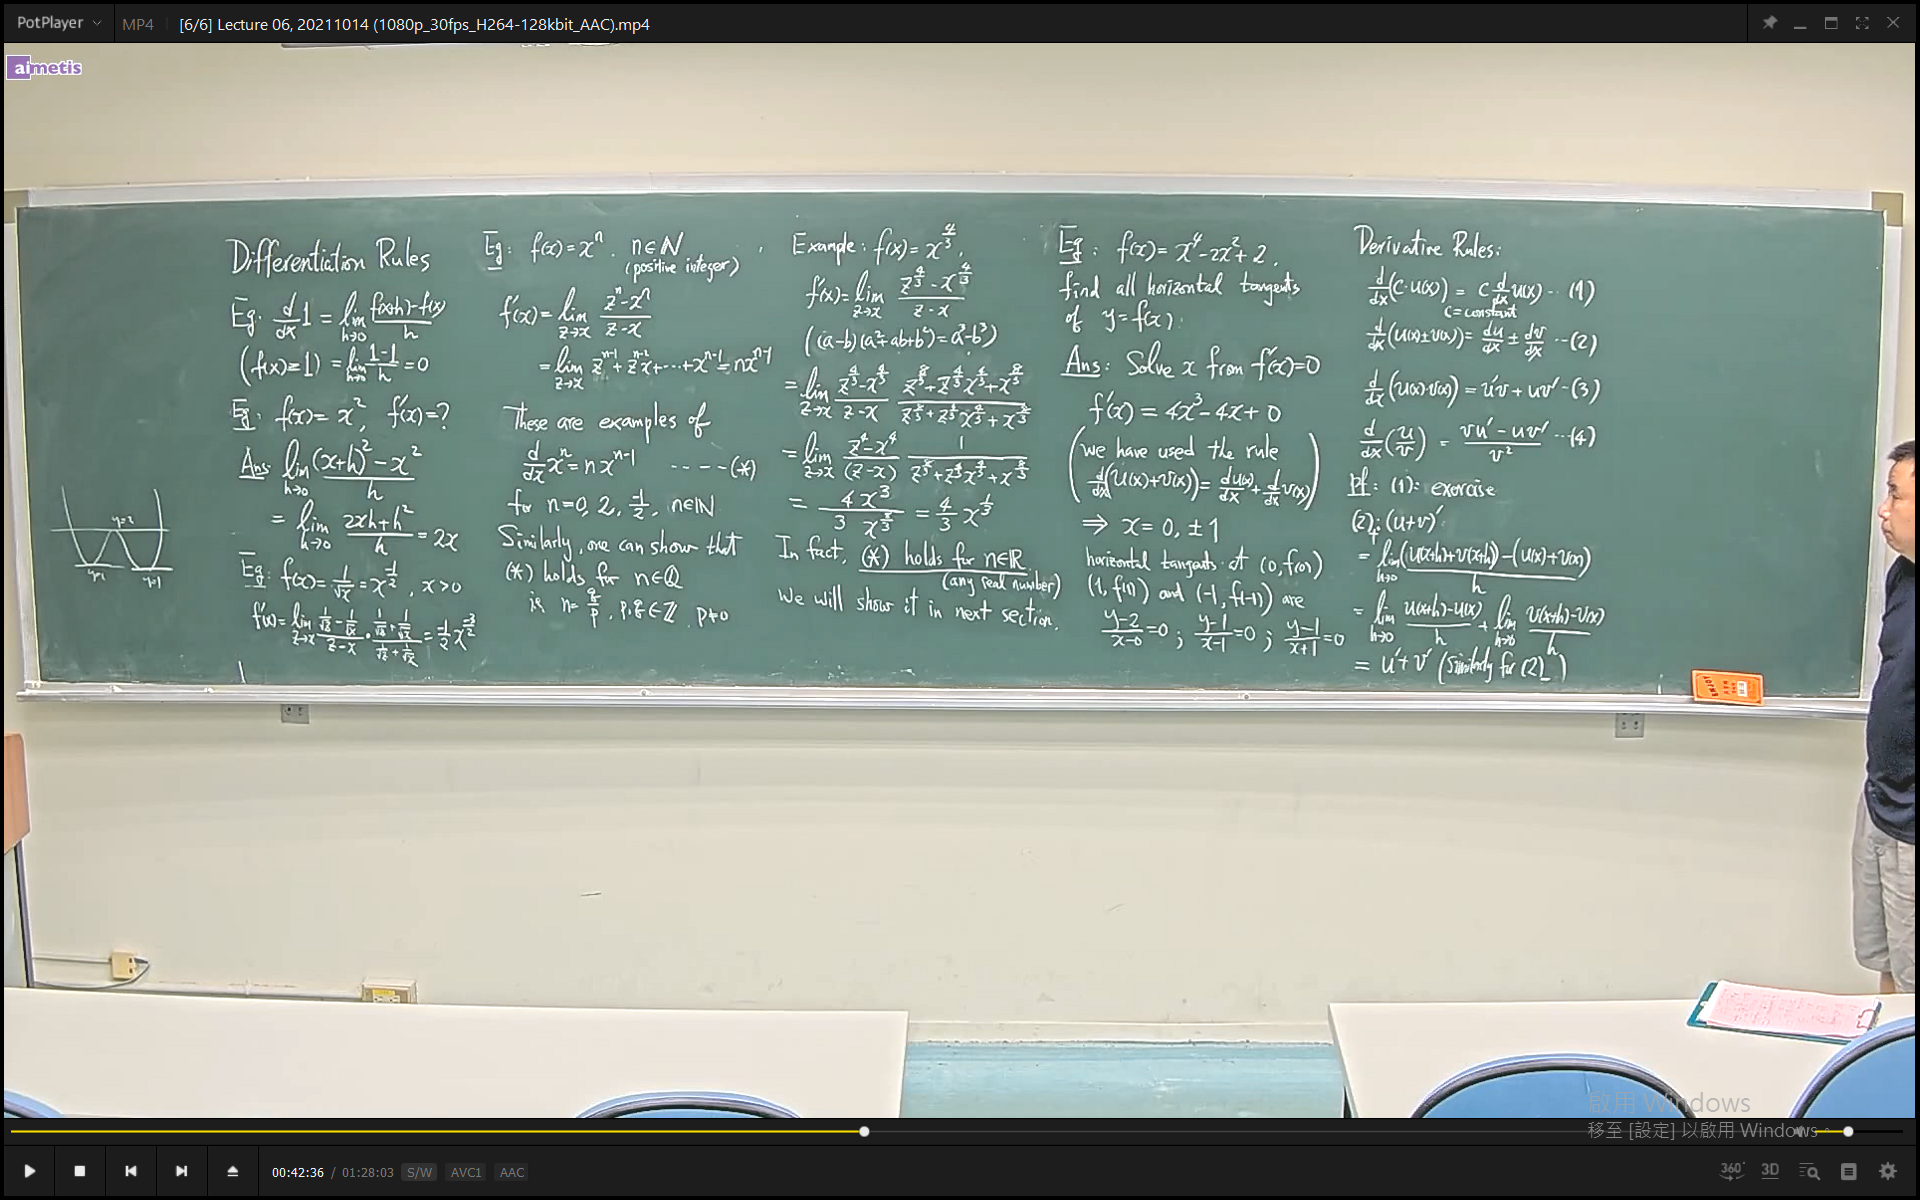 PotPlayer
MP4
[6/6] Lecture 06, 20211014 (1080p_30fps_H264-128kbit_AAC).mp4
aimetis
Differentiation Rules
Eg: d/dx 1 = lim h→0 (f(x+h)-f(x))/h
(f(x)=1) = lim h→0 (1-1)/h = 0
Eg: f(x) = x², f'(x)=?
Ans: lim h→0 ((x+h)² - x²)/h
= lim h→0 (2xh+h²)/h = 2x
Eg: f(x) = 1/√x = x^(-1/2), x>0
f'(x) = lim z→x (1/√z - 1/√x)/(z-x) · (1/√z + 1/√x)/(1/√z + 1/√x) = -1/2 x^(-3/2)
y=2
y=1
y=1
Eg: f(x) = xⁿ. n∈N
(positive integer)
f'(x) = lim z→x (zⁿ-xⁿ)/(z-x)
= lim z→x z^(n-1) + z^(n-2)x + ··· + x^(n-1) = nx^(n-1)
These are examples of
d/dx xⁿ = n x^(n-1) ---- (*)
for n=0, 2, -1/2, n∈N
Similarly, one can show that
(*) holds for n∈Q
n= q/p, p,q∈Z, p≠0
Example: f(x) = x^(4/3),
f'(x) = lim z→x (z^(4/3) - x^(4/3))/(z-x)
((a-b)(a²+ab+b²) = a³-b³)
= lim z→x (z^(4/3)-x^(4/3))/(z-x) (z^(8/3)+z^(4/3)x^(4/3)+x^(8/3))/(z^(8/3)+z^(4/3)x^(4/3)+x^(8/3))
= lim z→x (z⁴-x⁴)/(z-x) 1/(z^(8/3)+z^(4/3)x^(4/3)+x^(8/3))
= 4x³/(3 x^(8/3)) = 4/3 x^(1/3)
In fact, (*) holds for n∈R
(any real number)
We will show it in next section.
Eg: f(x) = x⁴-2x²+2.
find all horizontal tangents
of y=f(x).
Ans: Solve x from f'(x)=0
f'(x) = 4x³-4x+0
(we have used the rule
d/dx(u(x)+v(x)) = du(x)/dx + d/dx v(x))
⇒ x = 0, ±1
horizontal tangents at (0,f(0))
(1,f(1)) and (-1,f(-1)) are
(y-2)/(x-0)=0 ; (y-1)/(x-1)=0 ; (y-1)/(x+1)=0
Derivative Rules:
d/dx(c·u(x)) = c d/dx u(x) -- (1)
c=constant
d/dx(u(x)±v(x)) = du/dx ± dv/dx -- (2)
d/dx(u(x)·v(x)) = u'v + uv' -- (3)
d/dx(u/v) = (vu' - uv')/v² -- (4)
pf: (1): exercise
(2)₊: (u+v)'
= lim h→0 ((u(x+h)+v(x+h)) - (u(x)+v(x)))/h
= lim h→0 (u(x+h)-u(x))/h + lim h→0 (v(x+h)-v(x))/h
= u'+v' (similarly for (2)₋)
ENJOY
啟用 Windows
移至 [設定] 以啟用 Windows。
00:42:36 / 01:28:03 S/W AVC1 AAC
360° 3D